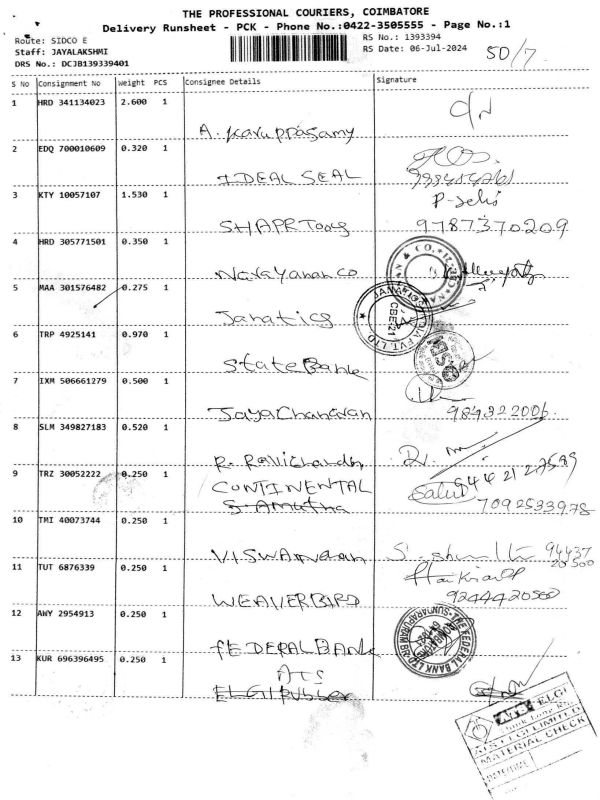 THE PROFESSIONAL COURIERS, COIMBATORE
Delivery Runsheet - PCK - Phone No.:0422-3505555 - Page No.:1
Route: SIDCO E
Staff: JAYALAKSHMI
DRS No.: DCJB139339401
RS No.: 1393394
RS Date: 06-Jul-2024
50/7
S No Consignment No Weight PCS Consignee Details Signature
1 HRD 341134023 2.600 1
A. Karuppasamy
2 EDQ 700010609 0.320 1
IDEAL SEAL
3 KTY 10057107 1.530 1
P-selvi
SHAPR Tools 9787370209
4 HRD 305771501 0.350 1
Narayanan co
5 MAA 301576482 0.275 1
Janatics
CBE-21
6 TRP 4925141 0.970 1
State Bank
7 IXM 506661279 0.500 1
JayaChandran
8 SLM 349827183 0.520 1
R. Ravichandn
9 TRZ 30052222 0.250 1
CONTINENTAL
S. Amutha 7092533978
10 TMI 40073744 0.250 1
94437
20500
11 TUT 6876339 0.250 1
WEAVERBIRD 9244420500
12 AWY 2954913 0.250 1
THE FEDERAL BANK LTD
FEDERAL BANK
13 KUR 696396495 0.250 1
ATS
ELGI Rubber
ATS ELGI
ATS ELGI LIMITED
MATERIAL CHECK
DATE/TIME